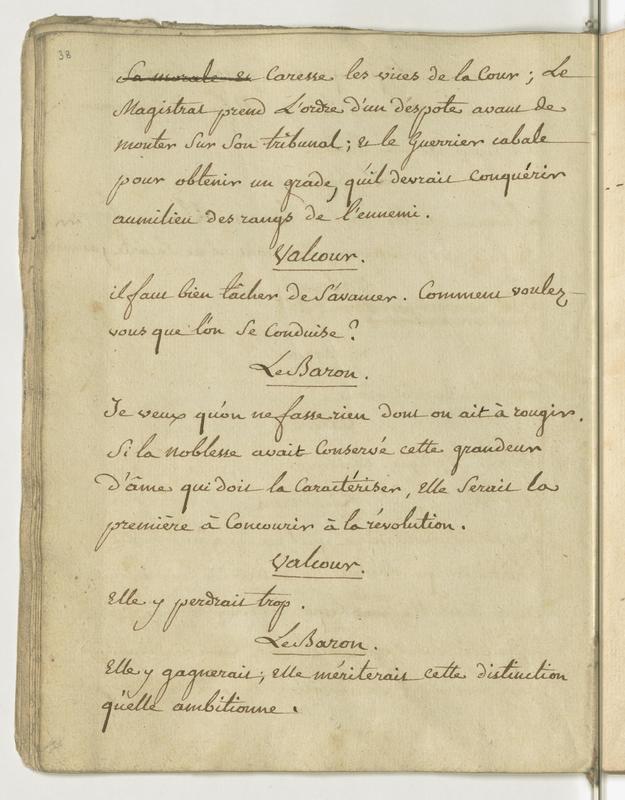 38
La morale et Caresse les vices de la Cour ; Le
Magistrat prend L'ordre d'un despote avant de
monter Sur Son tribunal ; et le Guerrier cabale
pour obtenir un grade, qu'il devrait Conquérir
aumilieu des rangs de l'ennemi.
Valcour.
il faut bien tâcher de S'avancer. Comment voulez-
vous que l'on Se Conduise ?
Le Baron.
Je veux qu'on ne fasse rien dont on ait à rougir.
Si la noblesse avait Conservé cette grandeur
d'âme qui doit la Caractériser, Elle Serait la
première à Concourir à la révolution.
Valcour.
Elle y perdrait trop.
Le Baron.
Elle y gagnerait ; Elle mériterait cette distinction
qu'elle ambitionne.